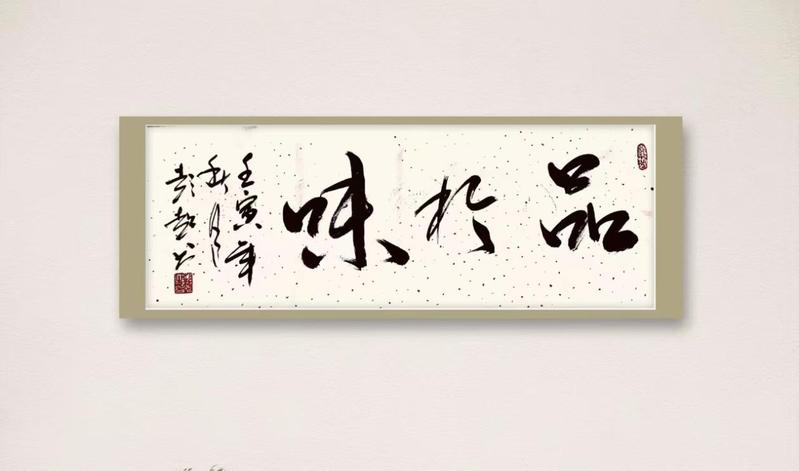 品於味
壬寅年
秋月
彭